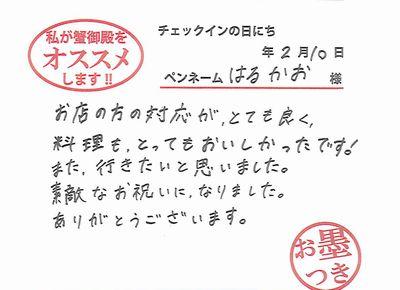 私が蟹御殿を
オススメ
します!!
チェックインの日にち
年2月10日
ペンネーム はるかお 様
お店の方の対応が、とても良く、
料理も、とってもおいしかったです!
また、行きたいと思いました。
素敵なお祝いに、なりました。
ありがとうございます。
お墨
つき